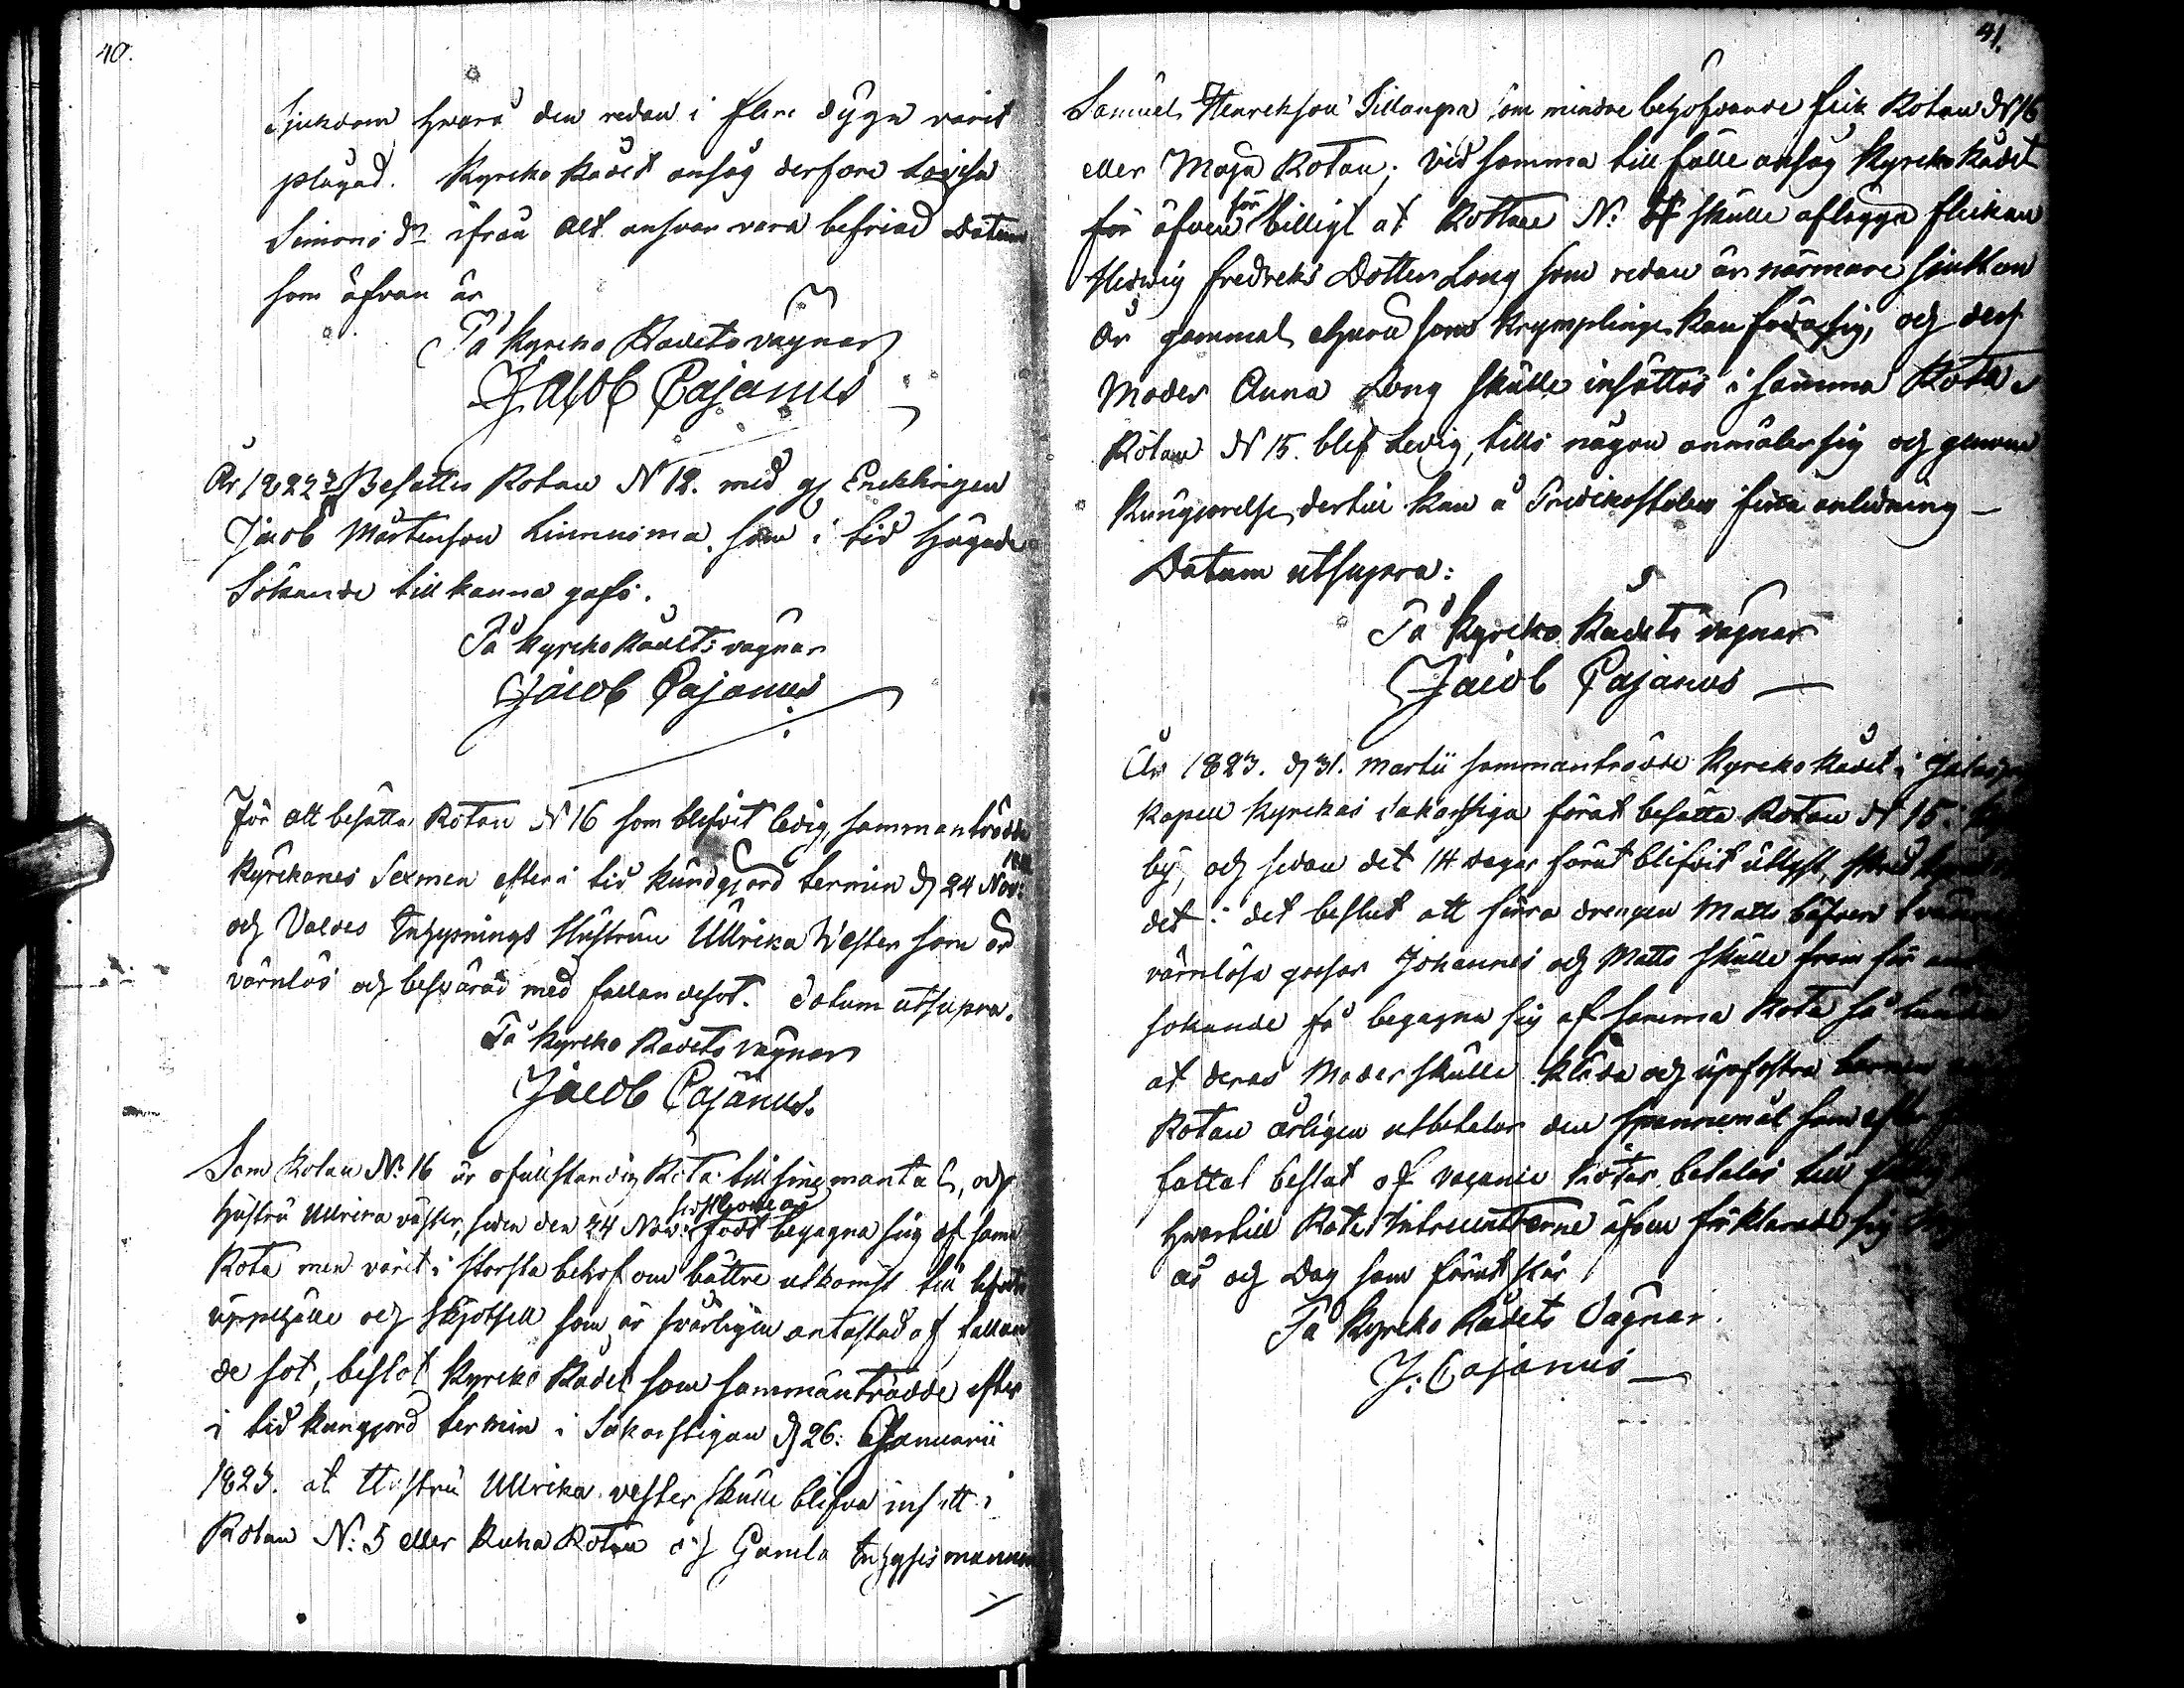 40.
Sjukdom hvara den redan i flere dygn varit
plågad. Kyrcko Rådet ansåg derföre Lovisa
Simons dr ifrån Alt ansvar vara befriad Datum
som åfvan är
På Kyrcko Rådets vägnar
Jacob Cajanus
År 1822 Besattes Rotan N 12. med gl Encklingen
Jacob Mårtenson Linnunma, som i tid hugade
Sökande till kanna gafs.
På Kyrcko Rådets vägnar
Jacob Cajanus
För att besätta Rotan N 16 som blifvit ledig, sammanträdde
Kyrckones Sexmen efter i tid kundgjord termin d 24 Nov: 1822
och Valdes Inhysnings Hustrun Ullrika Wester som är
värnlös och besvärad med fallandesot. Datum utsupra.
På Kyrcko Rådets vägnar
Jacob Cajanus.
Som Rotan No 16 är ofullstendig Rota till sine mantal, och
Hustru Ullrika väster, seden den 24 Nov: sistl: fådt begagna sig af samma
Rota men varit i största behof om bättre utkomst till
uppehälle och skjötsell som är svårligen antastad af fallan
de sot, beslöt Kyrcko Rådet som sammanträdde efter
i tid kungjord termin i Sakarstigan d 26: Januarii
1823. at Hustru Ullrika vester skulle blifva insatt i
Rotan No: 5 eller Kuha Rotan och Gamla Inhyses mannen
41.
Samuel Henrekson Tillanpera som mindre behöfvande fick Rotan N 16
eller Maja Rotan; Vid samma till fälle ansåg Kyrcko Rådet
för äfven för billigt at Rottan No: skulle aflägga flickan
Hedwig Fredreks Dotter Long som redan är närmare siutton
år gammal ehuru som Krympling kan föda sig, och des
Moder Anna Long skulle insättas i samma Rota
Rotan N 15. blef Ledig, tills någon anmäler sig och genom
Kungjörelse dertill kan å Predikostolen finna anledning
Datum utsupra:
På Kyrcko Rådets vägnar
Jacob Cajanus
År 1823. d 31. Martii sammanträdde Kyrcko Rådet i
kapell Kyrckas sakarstiga förat besätta Rotan N 15.
by, och sedan det 14 dagar förut blifvit utlyst,
det i det beslut att förra drengen Matts
värnlösa gossar Johannes och Matts skulle fram för
sökande få begagna sig af samma Rota så
at deras Moder skulle kläda och upfostra barnen
Rotan årligen utbetalar den spannemål som efter
fattat beslut af vacanie Rotar betalas till
hwartill Rote Intressenterne äfven förklarade sig
år och Dag som förut står
På Kyrcko Rådets Vägnar.
J: Cajanus